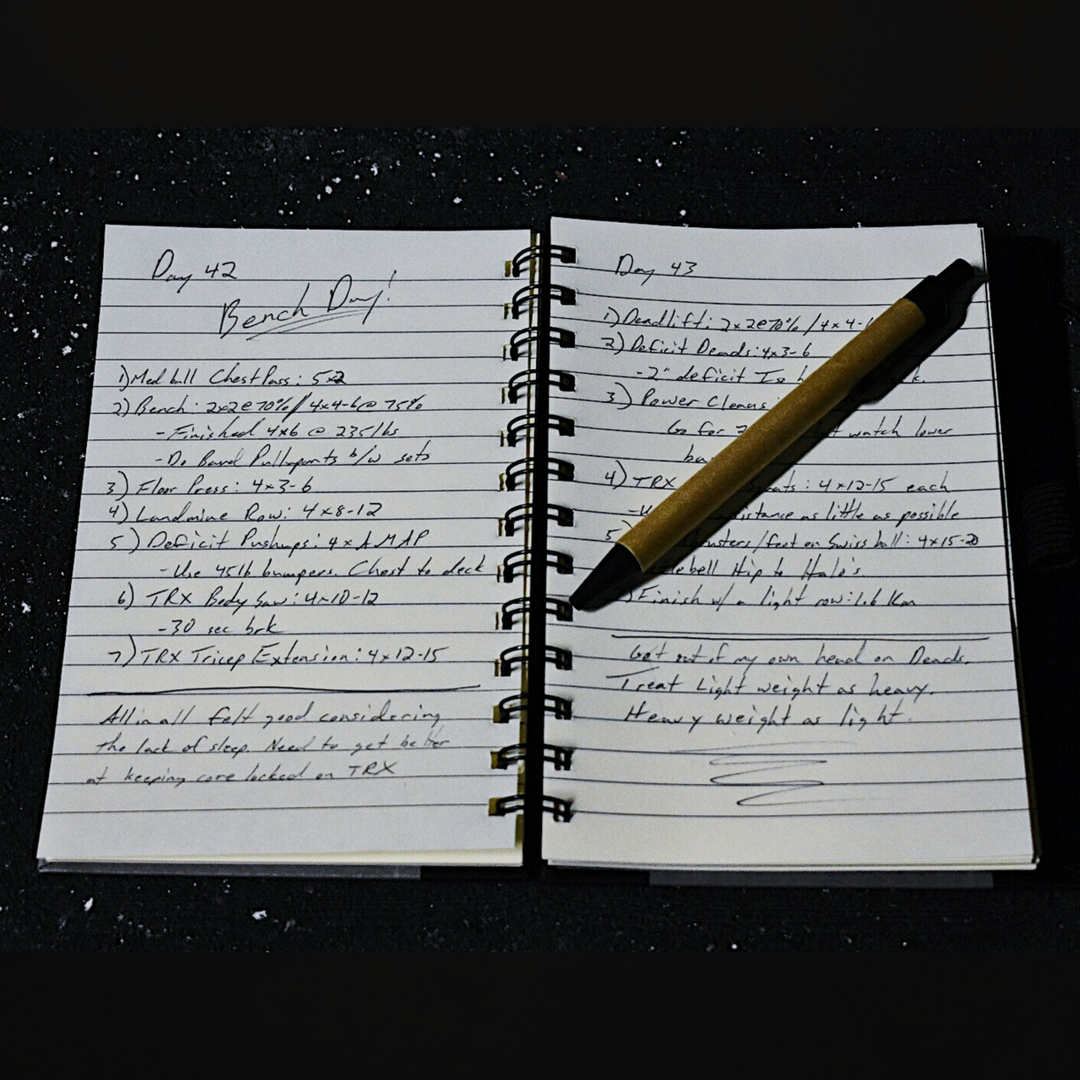 Day 42
Bench Day!
1) Med ball Chest Pass: 5x2
2) Bench: 2x2@70% / 4x4-6@ 75%
- Finished 4x6 @ 235lbs
- Do Band Pullaparts b/w sets
3) Floor Press: 4x3-6
4) Landmine Row: 4x8-12
5) Deficit Pushups: 4xAMAP
- Use 45lb bumpers. Chest to deck
6) TRX Body Saw: 4x10-12
- 30 sec brk
7) TRX Tricep Extension: 4x12-15
All in all felt good considering
the lack of sleep. Need to get better
at keeping core locked on TRX
Day 43
1) Deadlift: 2x2@70% / 4x4-
2) Deficit Deads: 4x3-6
- 2" deficit
3) Power Cleans:
Go for watch lower
4) TRX : 4x12-15 each
as little as possible
5 /feet on Swiss ball: 4x15-20
Hip to Halo's.
Finish w/ a light row: 1.6 Km
Get out of my own head on Deads.
Treat Light weight as heavy.
Heavy weight as light.